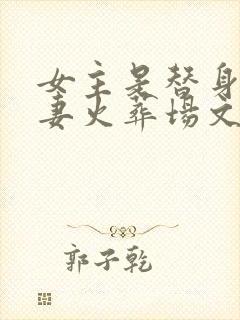 女主是替身
妻火葬场文
郭子乾